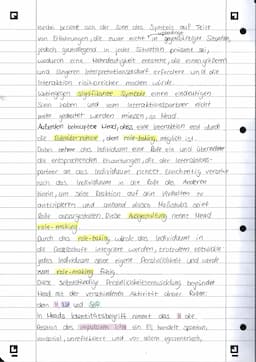 bezieht sich der Sinn des Symbols auf Teile
von Erfahrungen, die zwar nicht in gegenwärtiger Situation,
jedoch grundlegend in jeder Situation präsent sei,
wodurch eine Mehrdeutigkeit entstehe, die einen größeren
und längeren Interpretationsbedarf erfordere und die
Interaktion risikoreicher machen würde.
signifikante Symbole einen eindeutigen
Sinn haben und vom Interaktionspartner nicht
mehr gedeutet werden müssen, so Mead.
Außerdem behauptete Mead, dass eine Interaktion erst durch
die Rollenübernahme, dem role-taking, möglich sei.
Dabei nehme das Individuum eine Rolle ein und übernehme
die entsprechenden Erwartungen, die der Interaktions-
partner an das Individuum richtet. Gleichzeitig versetze
sich das Individuum in die Rolle des Anderen
hinein, um seine Reaktion auf sein Verhalten zu
antizipieren und anhand dieses Maßstabs seine
Rolle auszugestalten. Diese Ausgestaltung nennt Mead
role-making.
Durch das role-taking würde das Individuum in
die Gesellschaft integriert werden, trotzdem entwickle
jedes Individuum seine eigene Persönlichkeit und werde
zum role-making fähig.
Diese selbstständige Persönlichkeitsentwicklung begründet
Mead mit der verschiedenen Aktivität dreier Faktoren:
den I, Me und Self.
In Meads Identitätsbegriff nimmt das I die
Position des impulsiven Ichs ein. Es handelt spontan,
unreflektiert und vor allem egozentrisch,